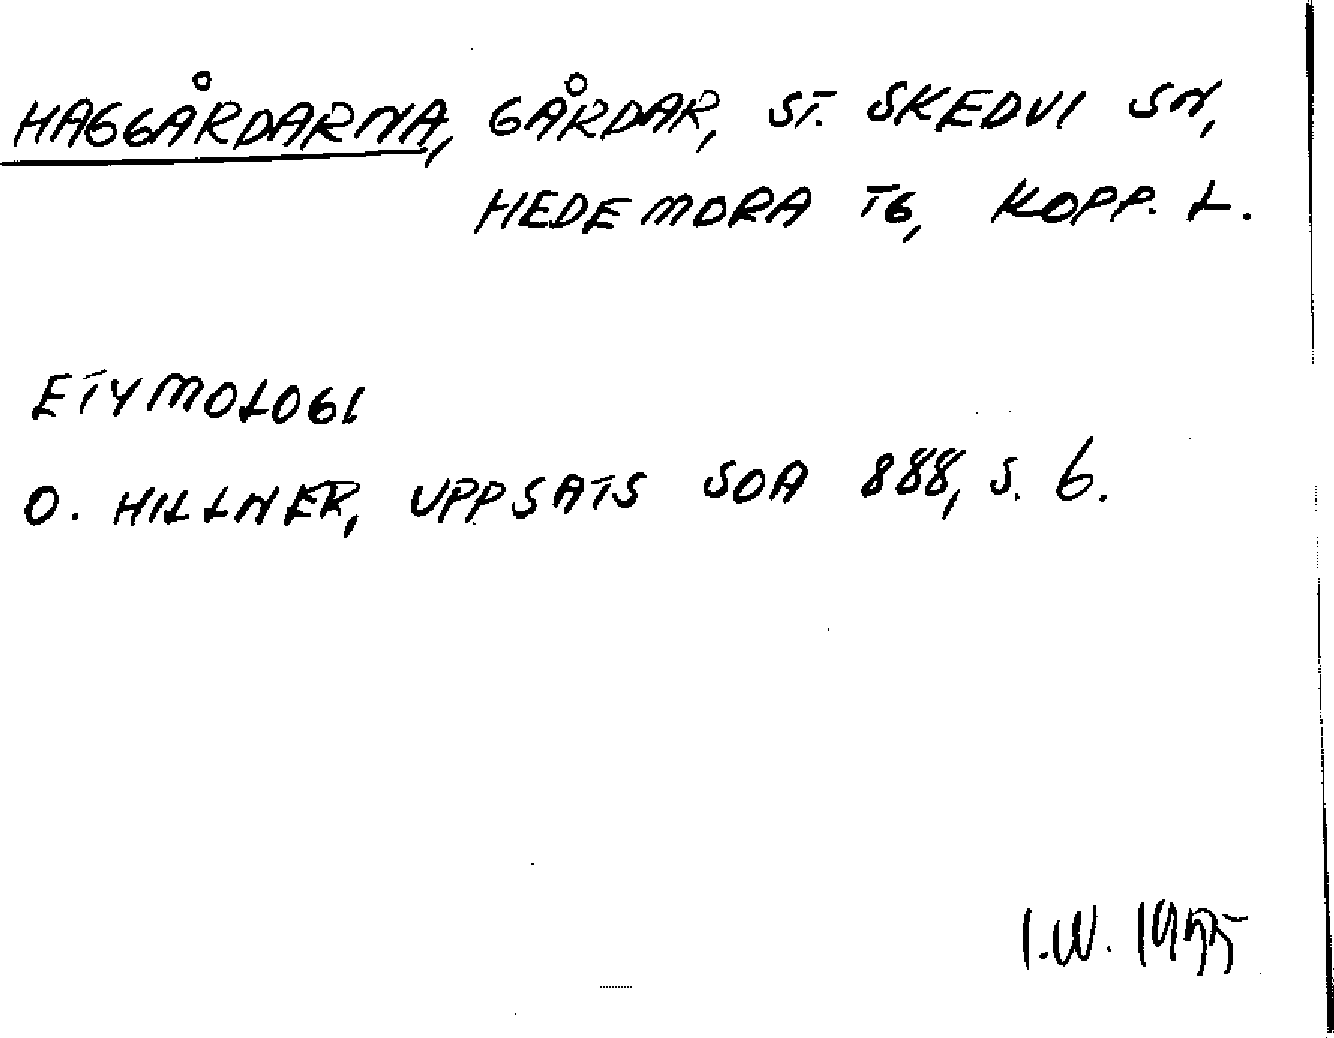 HAGGÅRDARNA, GÅRDAR, ST. SKEDVI SN,
HEDEMORA TG, KOPP. L.
ETYMOLOGI
O. HILLNER, UPPSATS SOA 888, S. 6.
I.W. 1955